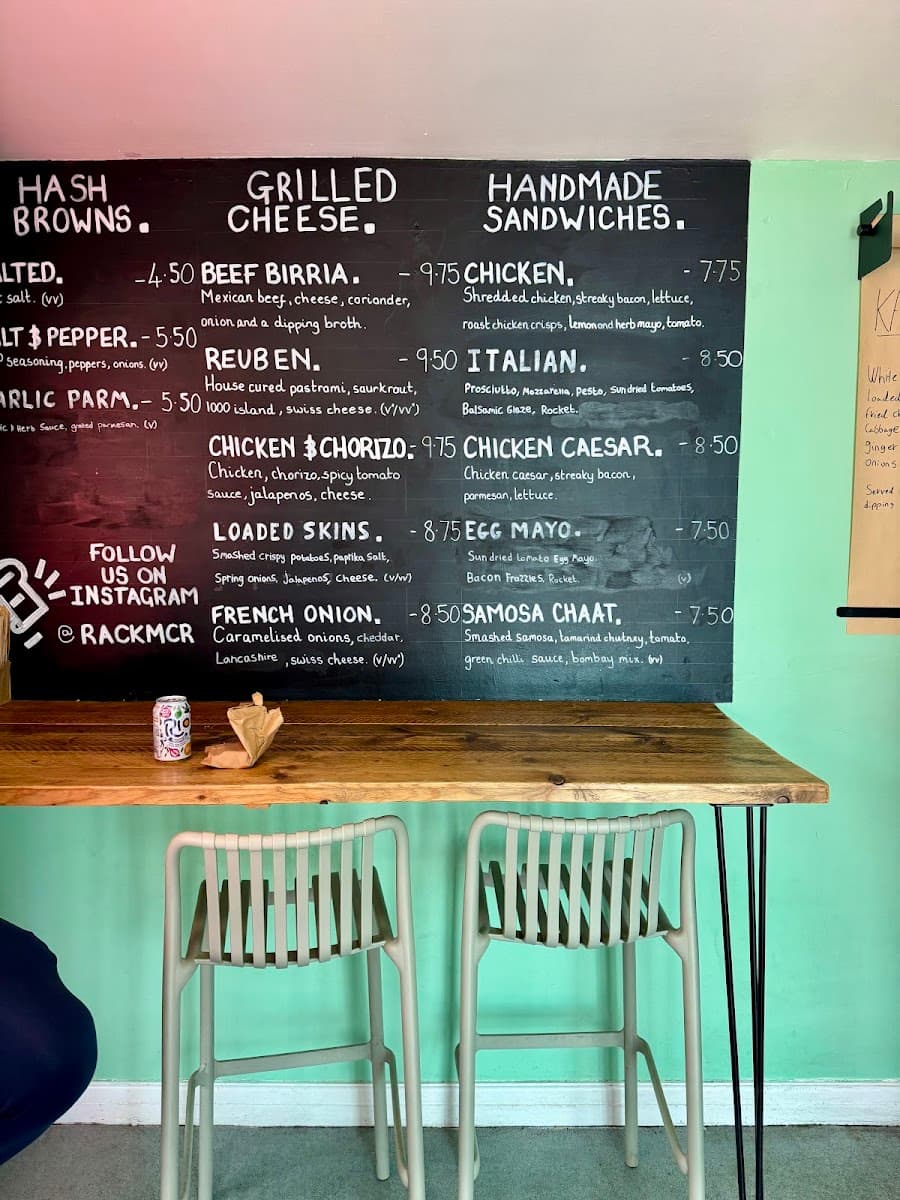 HASH
BROWNS.
LTED. -4.50
salt. (vv)
LT $ PEPPER. - 5.50
seasoning, peppers, onions. (vv)
ARLIC PARM. - 5.50
Herb Sauce, grated parmesan. (v)
FOLLOW
US ON
INSTAGRAM
@RACKMCR
GRILLED
CHEESE.
BEEF BIRRIA. - 9.75
Mexican beef, cheese, coriander,
onion and a dipping broth.
REUBEN. - 9.50
House cured pastrami, saurkraut,
1000 island, swiss cheese. (v/vv)
CHICKEN $ CHORIZO. - 9.75
Chicken, chorizo, spicy tomato
sauce, jalapenos, cheese.
LOADED SKINS. - 8.75
Smashed crispy potatoes, paprika salt,
Spring onions, jalapenos, cheese. (v/vv)
FRENCH ONION. - 8.50
Caramelised onions, cheddar,
Lancashire, swiss cheese. (v/vv)
HANDMADE
SANDWICHES.
CHICKEN. - 7.75
Shredded chicken, streaky bacon, lettuce,
roast chicken crisps, lemon and herb mayo, tomato.
ITALIAN. - 8.50
Prosciutto, Mozzarella, Pesto, Sun dried tomatoes,
Balsamic Glaze, Rocket.
CHICKEN CAESAR. - 8.50
Chicken caesar, streaky bacon,
parmesan, lettuce.
EGG MAYO. - 7.50
Sun dried tomato Egg Mayo.
Bacon Frazzles, Rocket. (v)
SAMOSA CHAAT. - 7.50
Smashed samosa, tamarind chutney, tomato,
green chilli sauce, bombay mix. (vv)
KA
White
loaded
fried
Cabbage
ginger
onions
Served
dipping